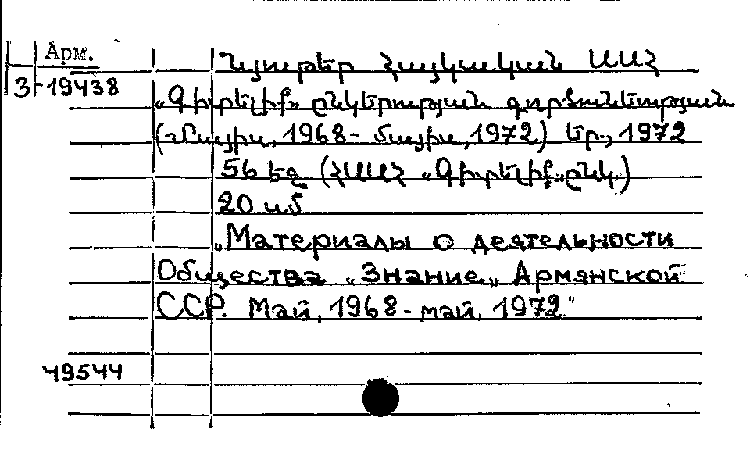 Арм.
3-19438
Նյութեր Հայկական ՍՍՀ
«Գիտելիք» ընկերության գործունեության
(Մայիս, 1968- մայիս, 1972) Եր., 1972
56 էջ (ՀՍՍՀ «Գիտելիք» ընկ.)
20 սմ
„Материалы о деятельности
Общества „Знание„ Армянской
ССР. Май, 1968- май, 1972"
49544